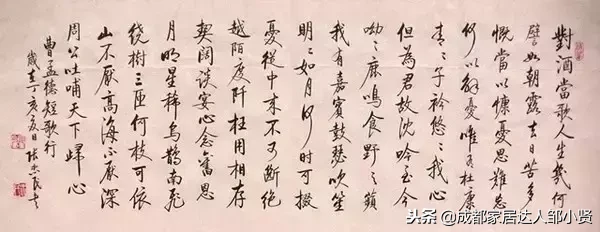 對酒當歌人生幾何
譬如朝露去日苦多
慨當以慷憂思難忘
何以解憂唯有杜康
青々子衿悠々我心
但為君故沈吟至今
呦々鹿鳴食野之蘋
我有嘉賓鼓瑟吹笙
明々如月何時可掇
憂從中來不可斷絕
越陌度阡枉用相存
契闊談宴心念舊恩
月明星稀烏鵲南飛
繞樹三匝何枝可依
山不厭高海不厭深
周公吐哺天下歸心
曹孟德短歌行
歲在丁亥夏日
头条@成都家居达人邹小贤